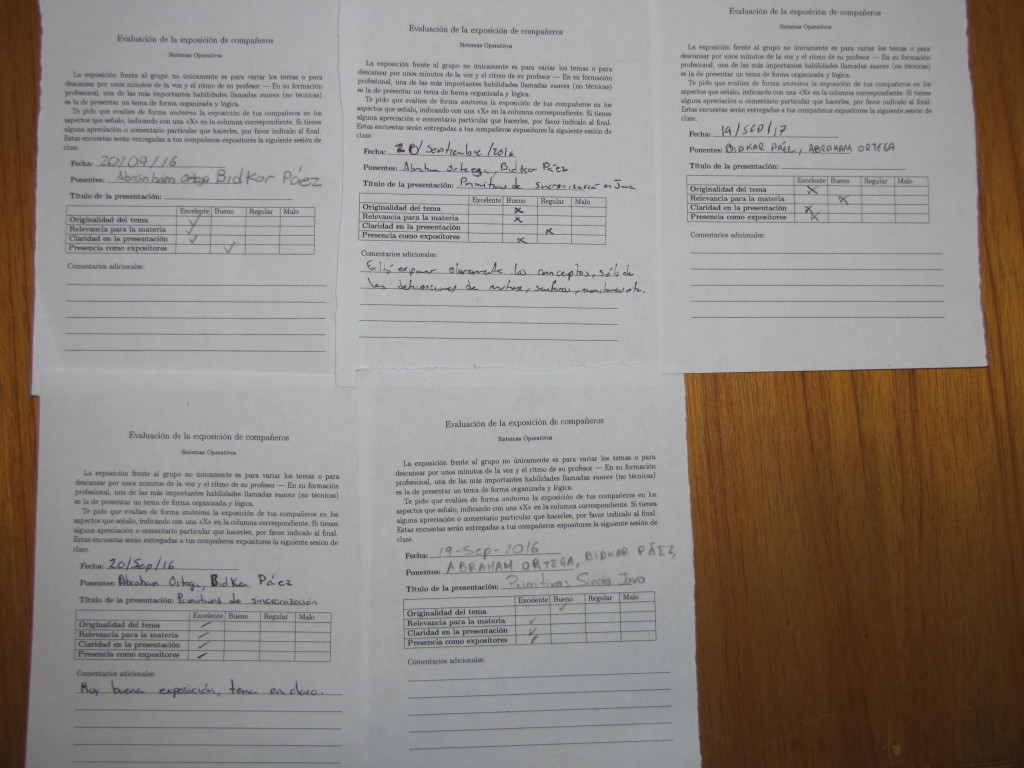 Evaluación de la exposición de compañeros
Sistemas Operativos
La exposición frente al grupo no únicamente es para variar los temas o para
descansar por unos minutos de la voz y el ritmo de su profesor — En su formación
profesional, una de las más importantes habilidades llamadas suaves (no técnicas)
es la de presentar un tema de forma organizada y lógica.
Te pido que evalúes de forma anónima la exposición de tus compañeros en los
aspectos que señalo, indicando con una «X» en la columna correspondiente. Si tienes
alguna apreciación o comentario particular que hacerles, por favor indícalo al final.
Estas encuestas serán entregadas a tus compañeros expositores la siguiente sesión de
clase.
Fecha: 20/09/16
Ponentes: Abranham Ortega Bidkar Páez
Título de la presentación:
Excelente Bueno Regular Malo
Originalidad del tema ✓
Relevancia para la materia ✓
Claridad en la presentación ✓
Presencia como expositores ✓
Comentarios adicionales:
Evaluación de la exposición de compañeros
Sistemas Operativos
La exposición frente al grupo no únicamente es para variar los temas o para
descansar por unos minutos de la voz y el ritmo de su profesor — En su formación
profesional, una de las más importantes habilidades llamadas suaves (no técnicas)
es la de presentar un tema de forma organizada y lógica.
Te pido que evalúes de forma anónima la exposición de tus compañeros en los
aspectos que señalo, indicando con una «X» en la columna correspondiente. Si tienes
alguna apreciación o comentario particular que hacerles, por favor indícalo al final.
Estas encuestas serán entregadas a tus compañeros expositores la siguiente sesión de
clase.
Fecha: 20/septiembre/2016
Ponentes: Abraham Ortega, Bidkar Páez
Título de la presentación: Primitivas de sincronización en Java
Excelente Bueno Regular Malo
Originalidad del tema X
Relevancia para la materia X
Claridad en la presentación X
Presencia como expositores X
Comentarios adicionales:
Faltó exponer claramente los conceptos, sólo
las definiciones de mutex,
Evaluación de la exposición de compañeros
Sistemas Operativos
La exposición frente al grupo no únicamente es para variar los temas o para
descansar por unos minutos de la voz y el ritmo de su profesor — En su formación
profesional, una de las más importantes habilidades llamadas suaves (no técnicas)
es la de presentar un tema de forma organizada y lógica.
Te pido que evalúes de forma anónima la exposición de tus compañeros en los
aspectos que señalo, indicando con una «X» en la columna correspondiente. Si tienes
alguna apreciación o comentario particular que hacerles, por favor indícalo al final.
Estas encuestas serán entregadas a tus compañeros expositores la siguiente sesión de
clase.
Fecha: 19/SEP/17
Ponentes: BIDKAR PÁEZ, ABRAHAM ORTEGA
Título de la presentación:
Excelente Bueno Regular Malo
Originalidad del tema X
Relevancia para la materia X
Claridad en la presentación X
Presencia como expositores X
Comentarios adicionales:
Evaluación de la exposición de compañeros
Sistemas Operativos
La exposición frente al grupo no únicamente es para variar los temas o para
descansar por unos minutos de la voz y el ritmo de su profesor — En su formación
profesional, una de las más importantes habilidades llamadas suaves (no técnicas)
es la de presentar un tema de forma organizada y lógica.
Te pido que evalúes de forma anónima la exposición de tus compañeros en los
aspectos que señalo, indicando con una «X» en la columna correspondiente. Si tienes
alguna apreciación o comentario particular que hacerles, por favor indícalo al final.
Estas encuestas serán entregadas a tus compañeros expositores la siguiente sesión de
clase.
Fecha: 20/Sep/16
Ponentes: Abraham Ortega, Bidkar Páez
Título de la presentación: Primitivas de sincronización
Excelente Bueno Regular Malo
Originalidad del tema ✓
Relevancia para la materia ✓
Claridad en la presentación ✓
Presencia como expositores ✓
Comentarios adicionales:
Muy buena exposición, tema en claro.
Evaluación de la exposición de compañeros
Sistemas Operativos
La exposición frente al grupo no únicamente es para variar los temas o para
descansar por unos minutos de la voz y el ritmo de su profesor — En su formación
profesional, una de las más importantes habilidades llamadas suaves (no técnicas)
es la de presentar un tema de forma organizada y lógica.
Te pido que evalúes de forma anónima la exposición de tus compañeros en los
aspectos que señalo, indicando con una «X» en la columna correspondiente. Si tienes
alguna apreciación o comentario particular que hacerles, por favor indícalo al final.
Estas encuestas serán entregadas a tus compañeros expositores la siguiente sesión de
clase.
Fecha: 19-Sep-2016
Ponentes: ABRAHAM ORTEGA, BIDKAR PÁEZ
Título de la presentación: Primitivas Sincro Java
Excelente Bueno Regular Malo
Originalidad del tema ✓
Relevancia para la materia ✓
Claridad en la presentación ✓
Presencia como expositores ✓
Comentarios adicionales: